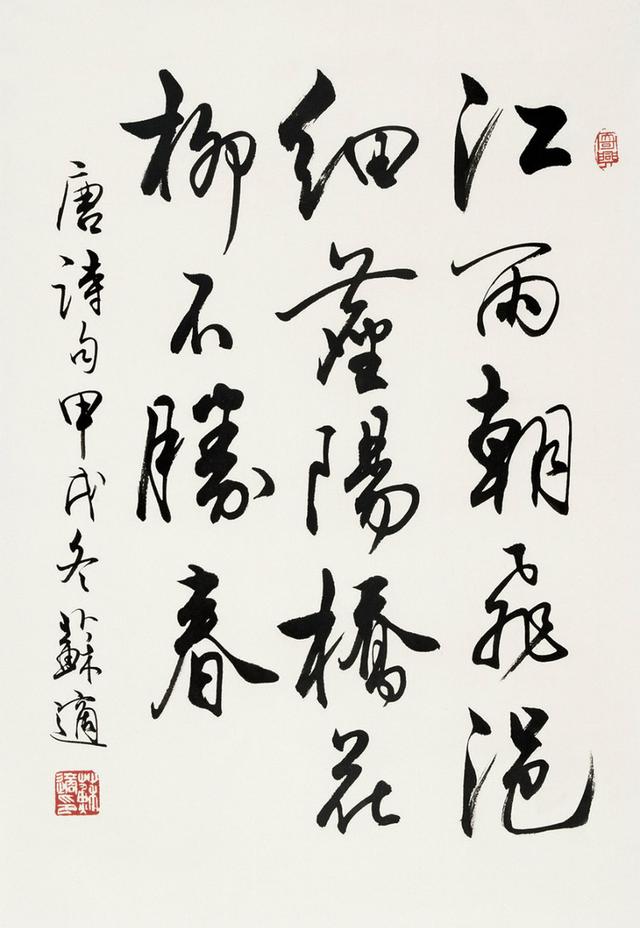 江雨朝飛浥
細塵陽橋花
柳不勝春
唐詩句甲戌冬蘇適